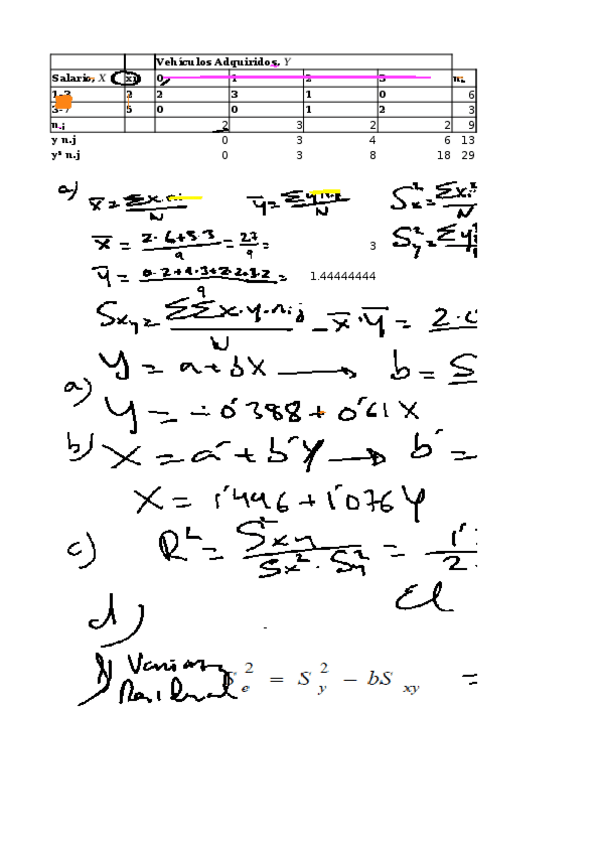 Vehículos Adquiridos, Y
Salario, X xi 0 1 2 3 ni.
2 2 3 1 0 6
3-7 5 0 0 1 2 3
n.j 2 3 2 2 9
y n.j 0 3 4 6 13
y² n.j 0 3 8 18 29
a) x̄ = Σxi.ni / N ȳ = Σyj n.j / N Sx² = Σxi² / N
x̄ = 2·6+5·3 / 9 = 27 / 9 = 3 Sy² = Σyj²
ȳ = 0·2+1·3+2·2+3·2 / 9 = 1.44444444
Sxy = ΣΣ x·y·nij / N - x̄·ȳ = 2·
Y = a + bX → b = S
a) Y = -0'388 + 0'61 X
b) X = a' + b'Y → b' =
X = 1'446 + 1'076 Y
c) R² = S²xy / Sx² · Sy² = 1' / 2
El
d)
Varianza Residual S²e = S²y − bSxy =